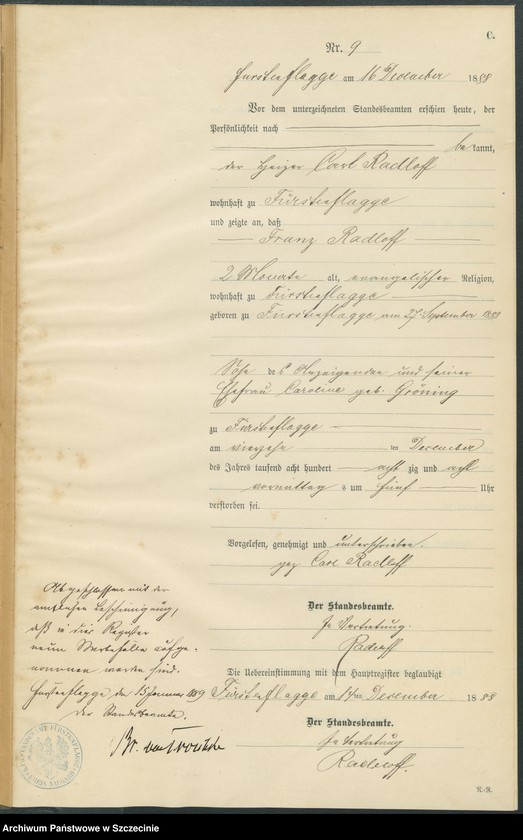 C.
Nr. 9
Fürstenflagge am 16 ten December 1888
Vor dem unterzeichneten Standesbeamten erschien heute, der
Persönlichkeit nach
bekannt,
der Carl Radloff
wohnhaft zu Fürstenflagge
und zeigte an, daß
Franz Radloff
2 Monate alt, evangelischer Religion,
wohnhaft zu Fürstenflagge
geboren zu Fürstenflagge am 27 September 1888
Sohn des Anzeigenden und seiner
Ehefrau Caroline geb. Gröning
zu Fürstenflagge
am vierzehn ten December
des Jahres tausend acht hundert acht zig und acht
vormittag s um fünf Uhr
verstorben sei.
Vorgelesen, genehmigt und unterschrieben.
gez Carl Radloff
Der Standesbeamte.
In Vertretung.
Radloff
Die Uebereinstimmung mit dem Hauptregister beglaubigt
Fürstenflagge am ten December 1888
Der Standesbeamte.
In Vertretung
Radloff.
Abgeschlossen mit der
amtlichen Bescheinigung,
daß in dies Register
neun Sterbefälle aufge-
nommen worden sind.
Fürstenflagge, den 15 Januar 1889
Der Standesbeamte.
R.-R.
Archiwum Państwowe w Szczecinie